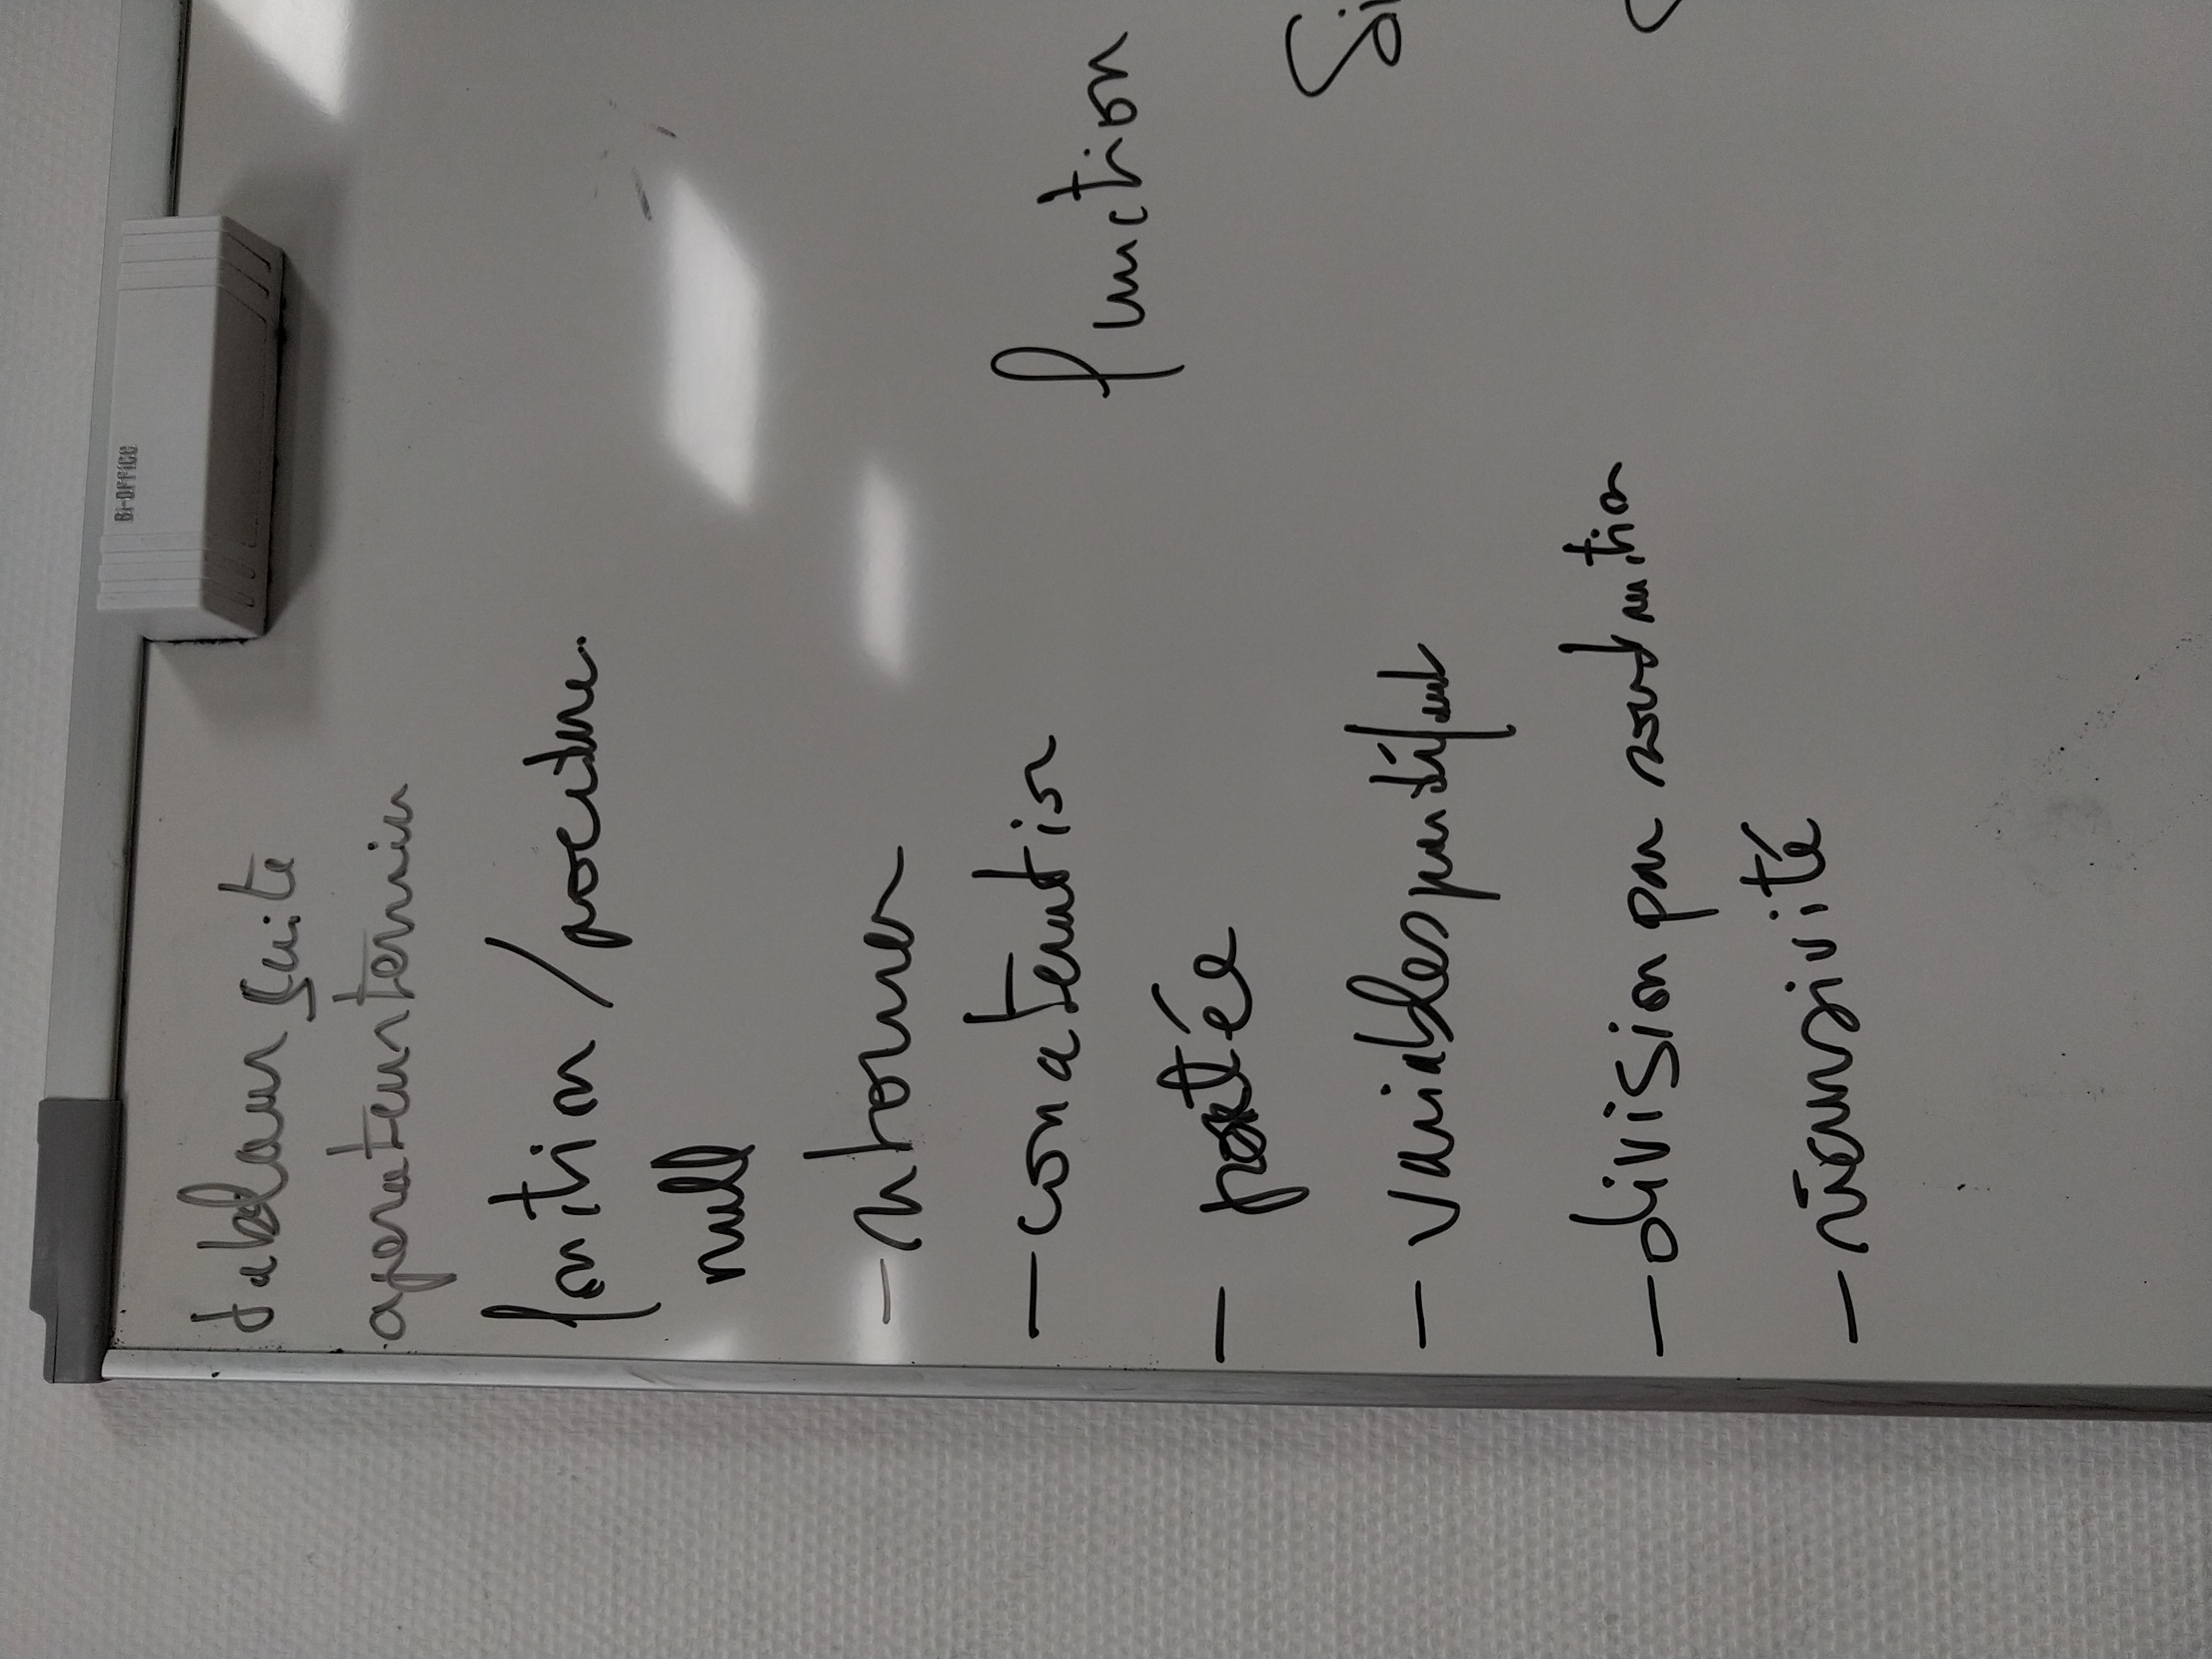 Bi-OFFICE
tableau suite
operateur ternair
fontion / procedure
null
- retourner
- concatenation
- portée
- variables par défaut
- division par soustraction
- récursivité
function
Si